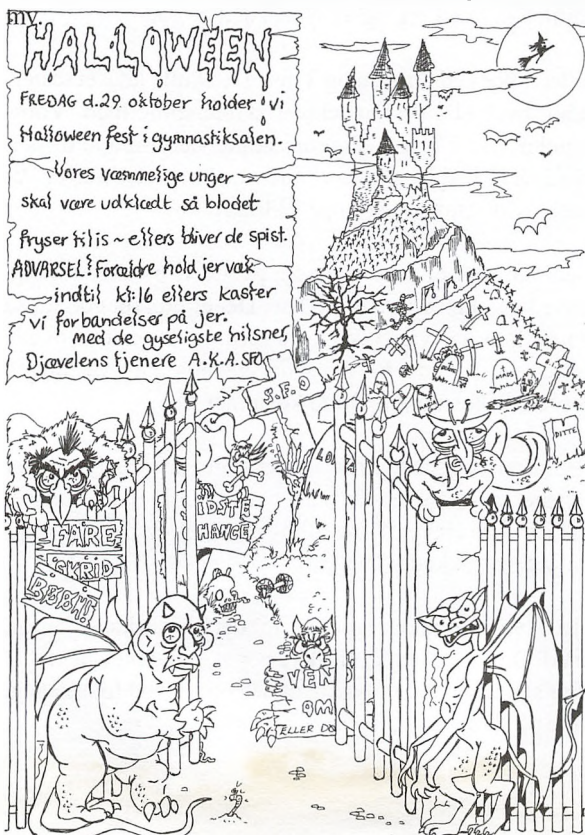 mv.
HALLOWEEN
FREDAG d.29. oktober holder vi
Halloween fest i gymnastiksalen.
Vores væmmelige unger
skal være udklædt så blodet
fryser til is ~ ellers bliver de spist.
ADVARSEL! Forældre hold jer væk
indtil kl:16 ellers kaster
vi forbandelser på jer.
med de gyseligste hilsner
Djævelens tjenere A.K.A. SFO
S.F.O
DITTE
SIDSTE
CHANCE
FARE
SKRID
BØBH!
VEN
OM
ELLER DØ